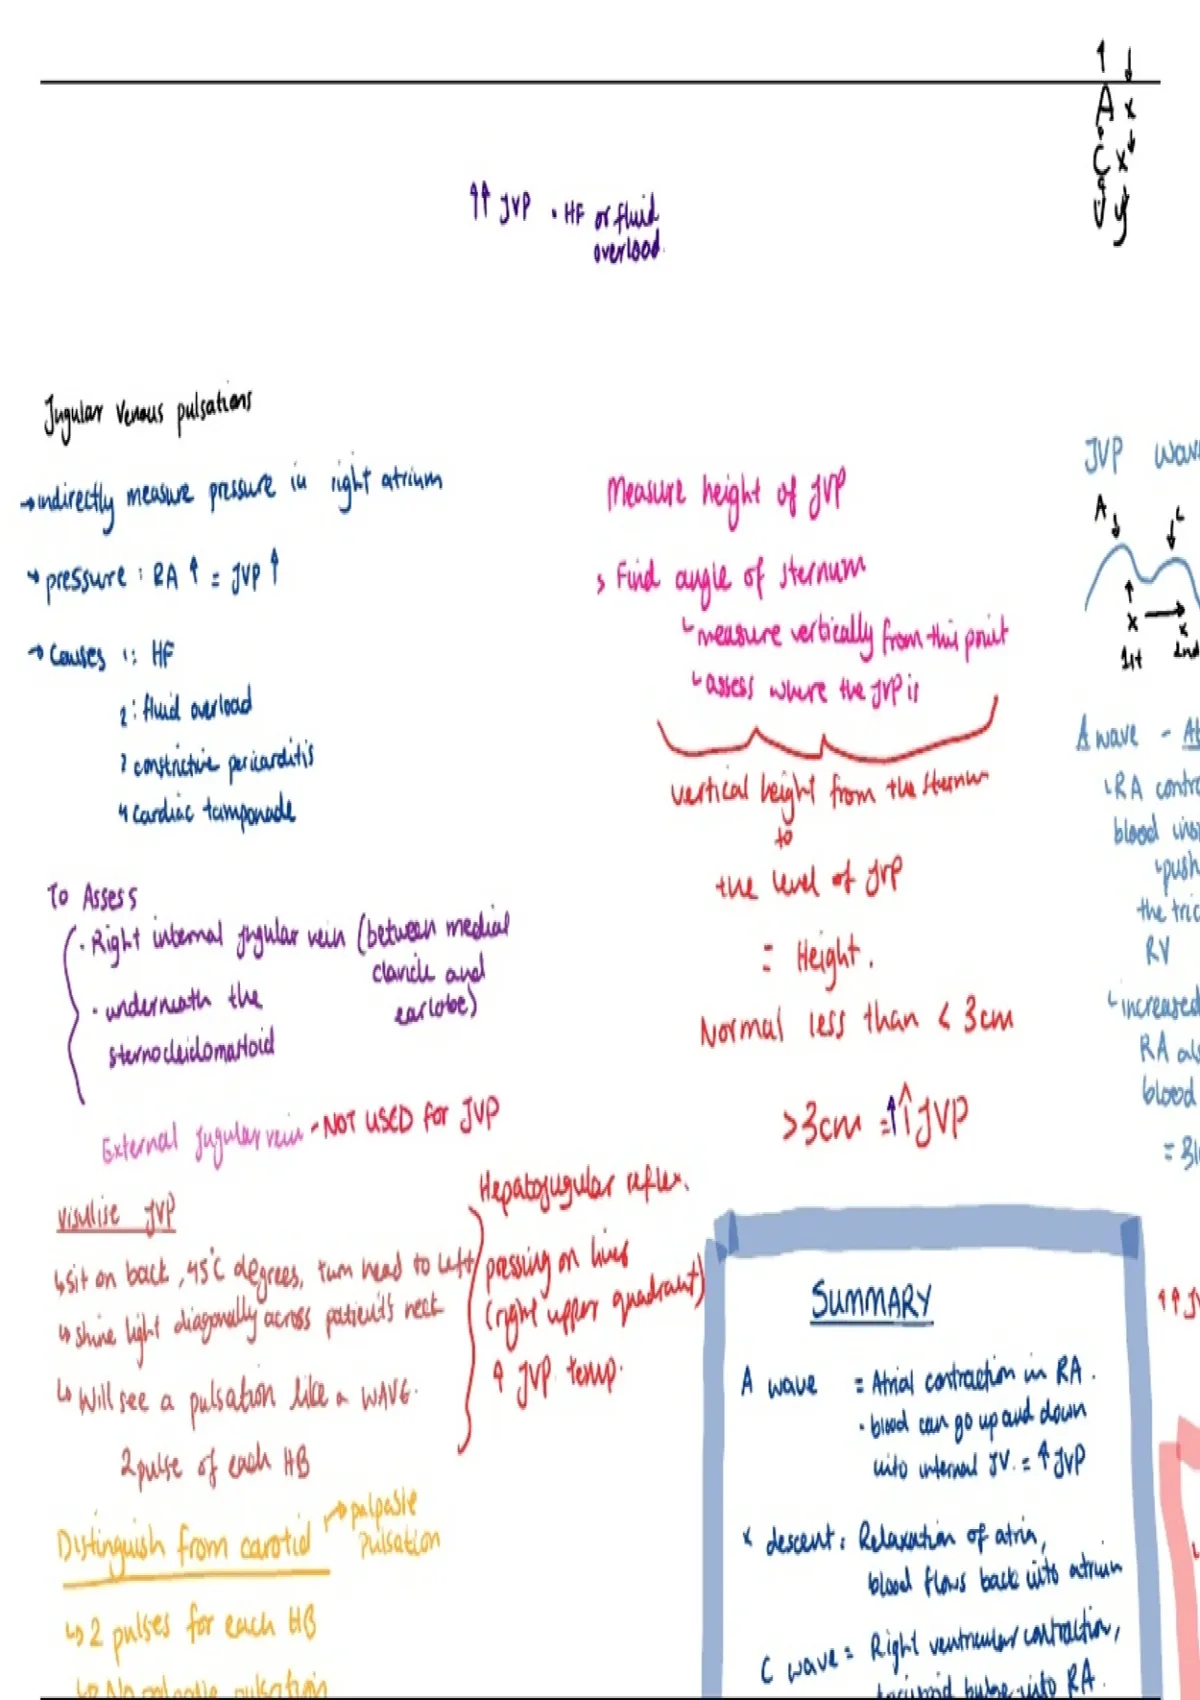 ↑ ↓
A x
C x
V y
↑↑ JVP • HF or fluid
overload.
Jugular Venous pulsations
→ indirectly measure pressure in right atrium
→ pressure : RA ↑ = JVP ↑
→ Causes 1: HF
2: fluid overload
3 constrictive pericarditis
4 Cardiac tamponade
To Assess
· Right internal jugular vein (between medial
clavicle and
earlobe)
· underneath the
sternocleidomastoid
External jugular vein - NOT USED for JVP
visulise JVP
↳ sit on back, 45°C degrees, turn head to left
↳ shine light diagonally across patient's neck
↳ Will see a pulsation like a WAVE.
2 pulse of each HB
Hepatojugular reflex.
pressing on liver
(right upper quadrant)
↑ JVP temp.
Distinguish from carotid → palpable
pulsation
↳ 2 pulses for each HB
↳ No palpable pulsation
Measure height of JVP
> Find angle of sternum
↳ measure vertically from this point
↳ assess where the JVP is
vertical height from the sternum
to
the level of JVP
= Height.
Normal less than < 3cm
>3cm = ↑↑ JVP
SUMMARY
A wave = Atrial contraction in RA.
· blood can go up and down
into internal JV. = ↑ JVP
x descent: Relaxation of atria,
blood flows back into atrium
C wave = Right ventricular contraction,
tricuspid bulge into RA.
JVP wav
A C
x → x
1st 2nd
A wave - At
↳ RA contra
blood insi
↳ push
the tric
RV
↳ increased
RA als
blood
= Bl
↑↑ JV